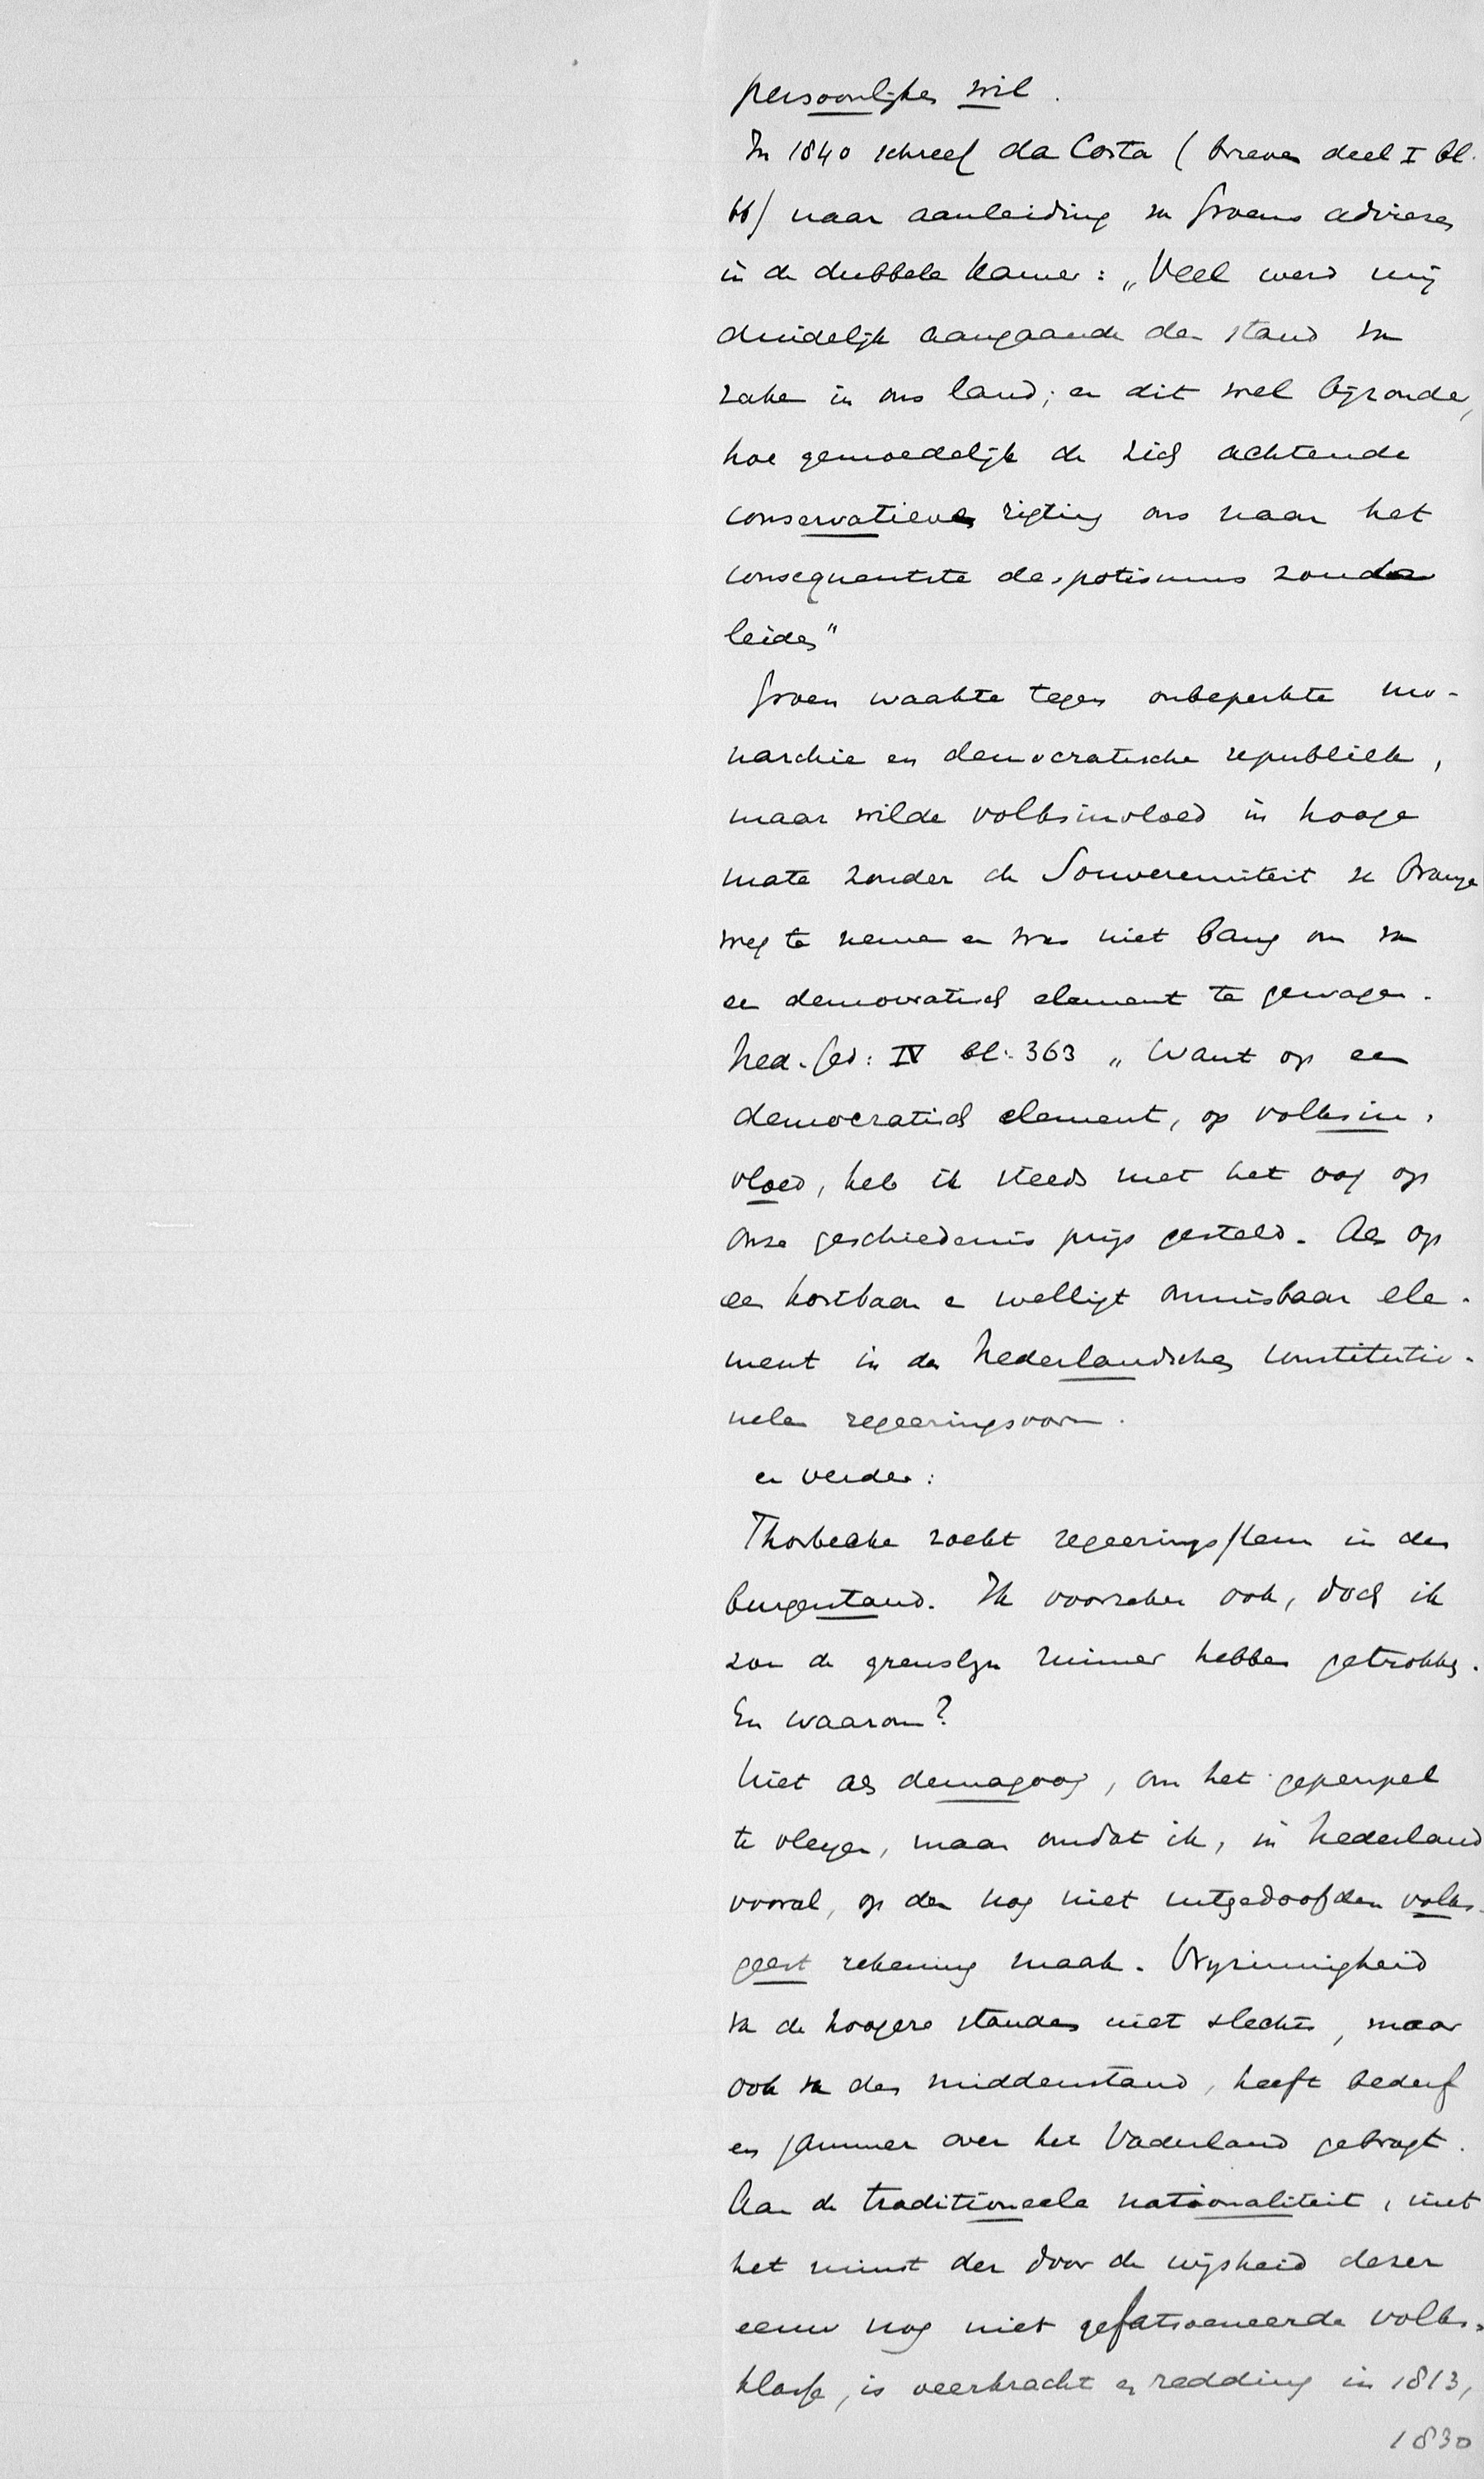 persoonlijken wil.
In 1840 schreef da Costa (brieven deel I bl.
66) naar aanleiding v Groens adviezen
in de dubbele Kamer: „Veel werd mij
duidelijk aangaande den stand van
zaken in ons land; en dit wel bijzonder,
hoe gemoedelijk de zich achtende
conservatieve rigting ons naar het
consequentste despotismus zoude
leiden"
Groen waakte tegen onbeperkte mo-
narchie en democratische republiek,
maar wilde volksinvloed in hooge
mate zonder de Souvereiniteit v Oranje
weg te nemen en was niet bang om van
een democratisch element te gewagen.
Ned. Ged: IV bl. 363 „Want op een
democratisch element, op volksin-
vloed, heb ik steeds met het oog op
onze geschiedenis prijs gesteld. Als op
een kostbaar en welligt onmisbaar ele-
ment in den Nederlandschen constitutio-
nelen regeeringsvorm.
en verder:
Thorbecke zocht regeeringsklem in den
burgerstand. Ik voorzeker ook, doch ik
zou de grenslijn ruimer hebben getrokken.
En waarom?
Niet als demagoog, om het gepeupel
te vleyen, maar omdat ik, in Nederland
vooral, op den nog niet uitgedoofden volks-
geest rekening maak. Vrijzinnigheid
van de hoogere standen niet slechts, maar
ook van den middenstand, heeft bederf
en jammer over het Vaderland gebragt.
Aan de traditioneele nationaliteit, niet
het minst der door de wijsheid dezer
eeuw nog niet gefatsoeneerde volks-
klasse, is veerkracht en redding in 1813,
1830